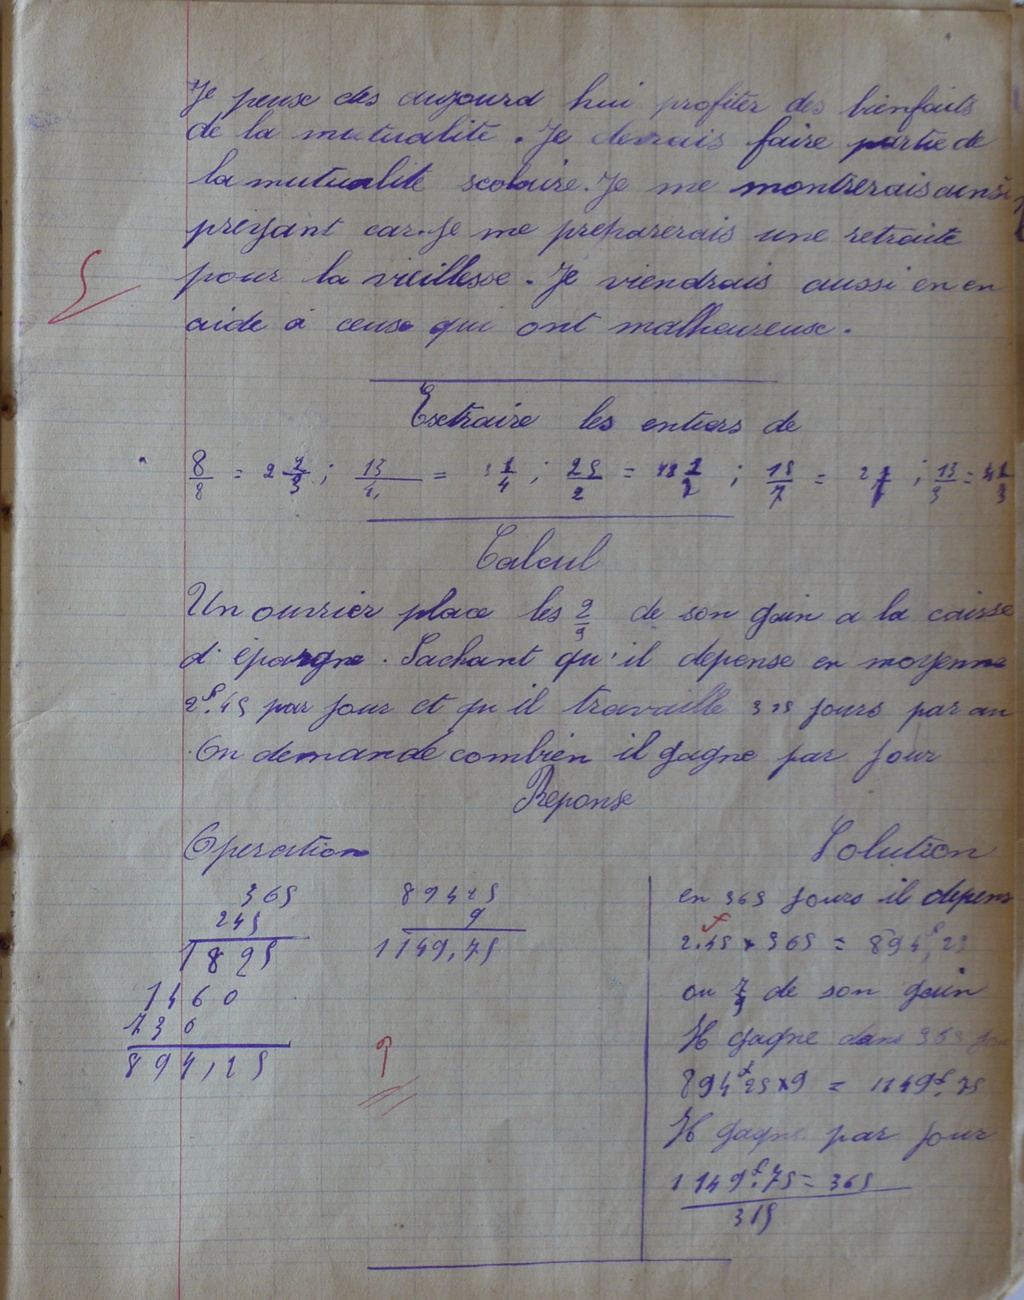 Je peuse des aujourd hui profiter des bienfaits
de la mutualite. Je devrais faire partie de
la mutualite scolaire. Je me montrerais ainsi
preyant car Je me preparerais une retraite
pour la vieillesse. Je viendrais aussi en en
aide a ceux qui ont malheureux.
Extraire les entiers de
8/8 = 2 2/3 ; 13/4 = 3 1/4 ; 25/2 = 12 1/2 ; 15/7 = 2 1/7 ; 13/3 =
Calcul
Un ouvrier place les 2/9 de son gain a la caisse
d'épargne. Sachant qu'il depense en moyenne
2f.45 par jour et qu il travaille jours par an
On demande combien il gagne par jour
Reponse
Operation Solution
365
245
1825
1460
730
894,25
89425
9
1149,75
en 365 jours il depens
2.45 x 365 = 894f,25
ou 7/9 de son gain
Il gagne dans 365
894f25x9 = 1149f.75
Il gagne par jour
1149f.75 = 365
315